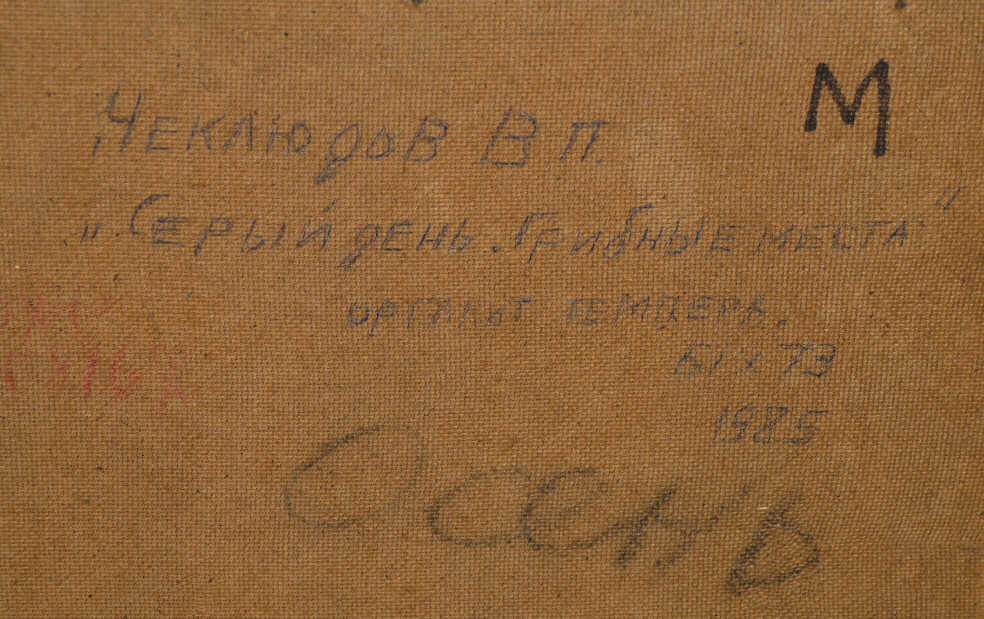 М
Неклюдов В П.
„Серый день. Грибные места"
оргалит темпера.
51 х 73
1985
Осень